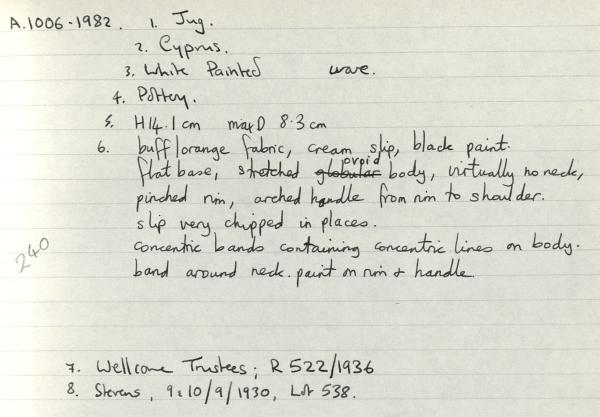 A.1006-1982. 1. Jug.
2. Cyprus.
3. White Painted ware.
4. Pottery.
5. H14.1cm maxD 8.3cm
6. buff/orange fabric, cream slip, black paint.
flat base, stretched globular ovoid body, virtually no neck,
pinched rim, arched handle from rim to shoulder.
slip very chipped in places.
concentric bands containing concentric lines on body.
band around neck. paint on rim & handle
240
7. Wellcome Trustees; R 522/1936
8. Stevens, 9 & 10/9/1930, Lot 538.